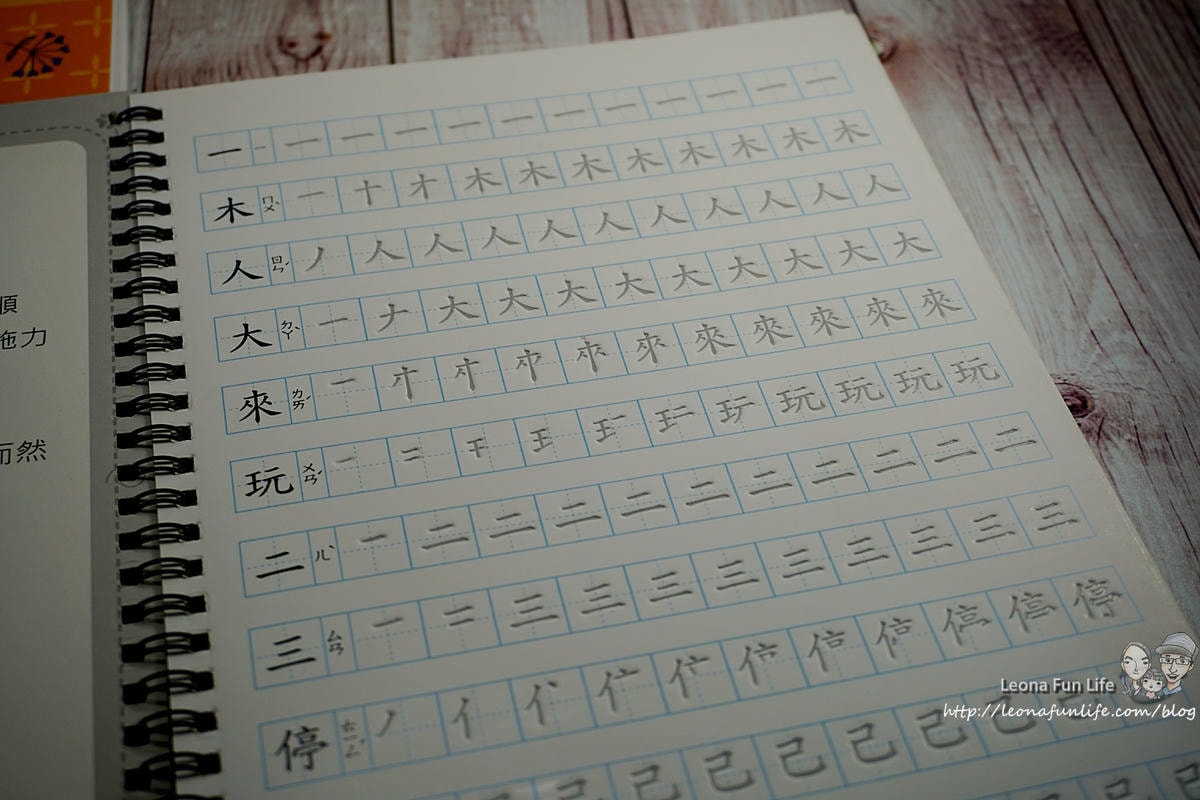 順
施力
而然
一 ㄧ 一 一 一 一 一 一 一 一 一 一 一
木 ㄇㄨˋ 一 十 才 木 木 木 木 木 木 木 木
人 ㄖㄣˊ 丿 人 人 人 人 人 人 人 人 人 人
大 ㄉㄚˋ 一 ナ 大 大 大 大 大 大 大 大 大
來 ㄌㄞˊ 一 來 來 來 來 來
玩 ㄨㄢˊ 一 二 干 王 玩 玩 玩 玩
二 ㄦˋ 一 二 二 二 二 二 二 二 二 二 二
三 ㄙㄢ 一 二 三 三 三 三 三 三 三 三 三
停 ㄊㄧㄥˊ 丿 亻 停 停
己 己 己 己 己 己 己
Leona Fun Life
http://leonafunlife.com/blog